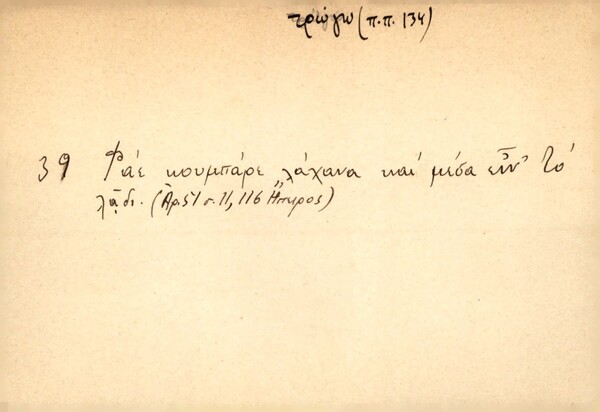 τρώγω (π.π. 134)
39 Φάε κουμπάρε λάχανα καί μέσα εἶν' τό
λᾴδι. (Ἀρ. 51 σ. 11, 116 Ἤπειρος)